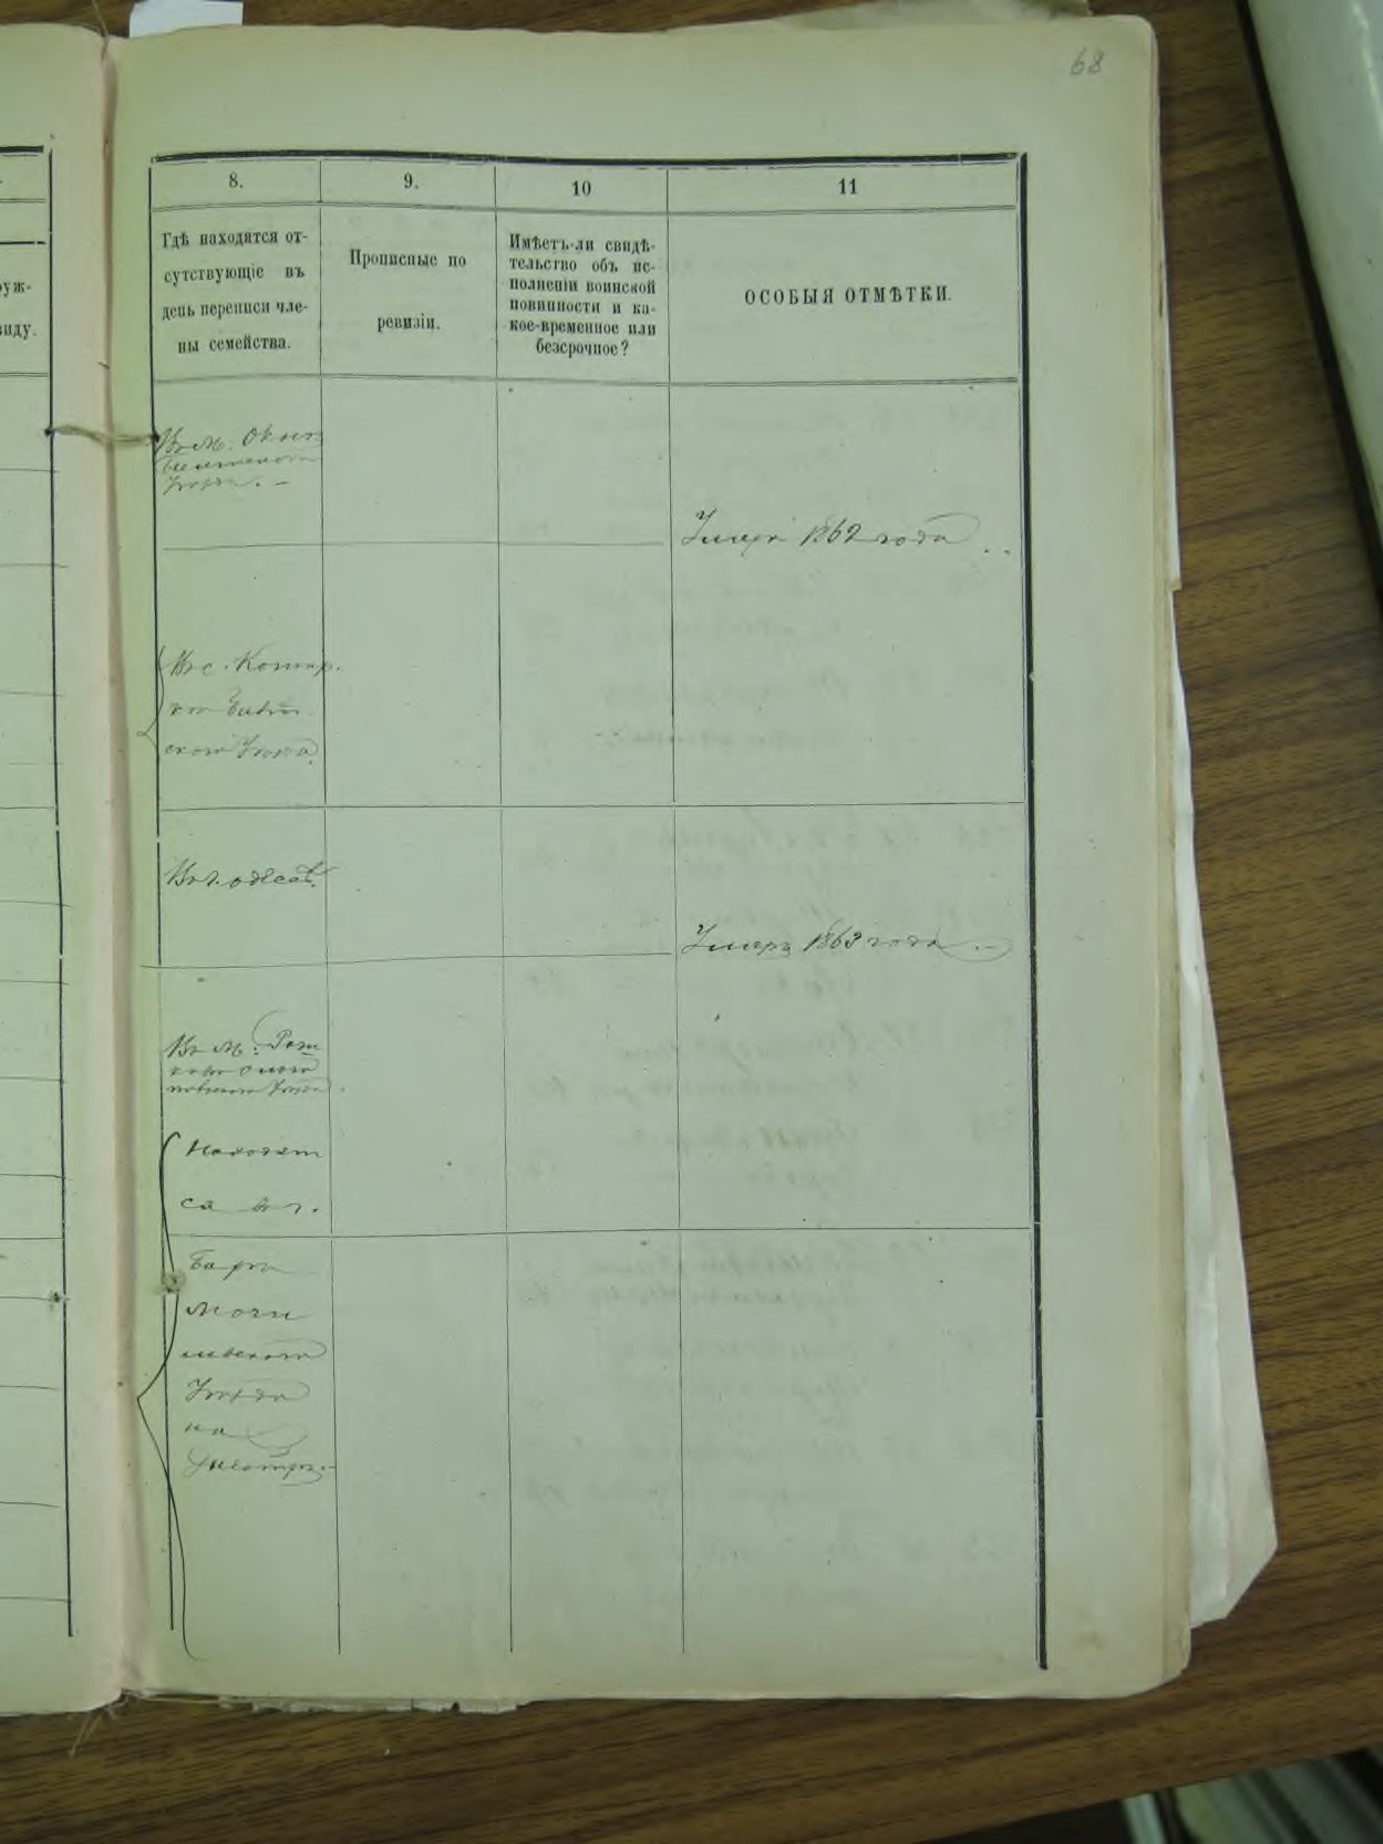 68
8.
9.
10
11
Гдѣ находятся от-
сутствующіе въ
день переписи чле-
ны семейства.
Прописные по
ревизіи.
Имѣетъ-ли свидѣ-
тельство объ ис-
полненіи воинской
повинности и ка-
кое-временное или
безсрочное?
ОСОБЫЯ ОТМѢТКИ.
уж-
виду.
Въ м. Окны
уѣзда. —
Умеръ 1862 года
Въ с.
уѣзда
Въ г. Одесѣ.
Умеръ 1863 года. —
Въ м.
уѣзда
Находят
ся въ г.
Барѣ
Моги
левскаго
Уѣзда
на
Днестрѣ. —